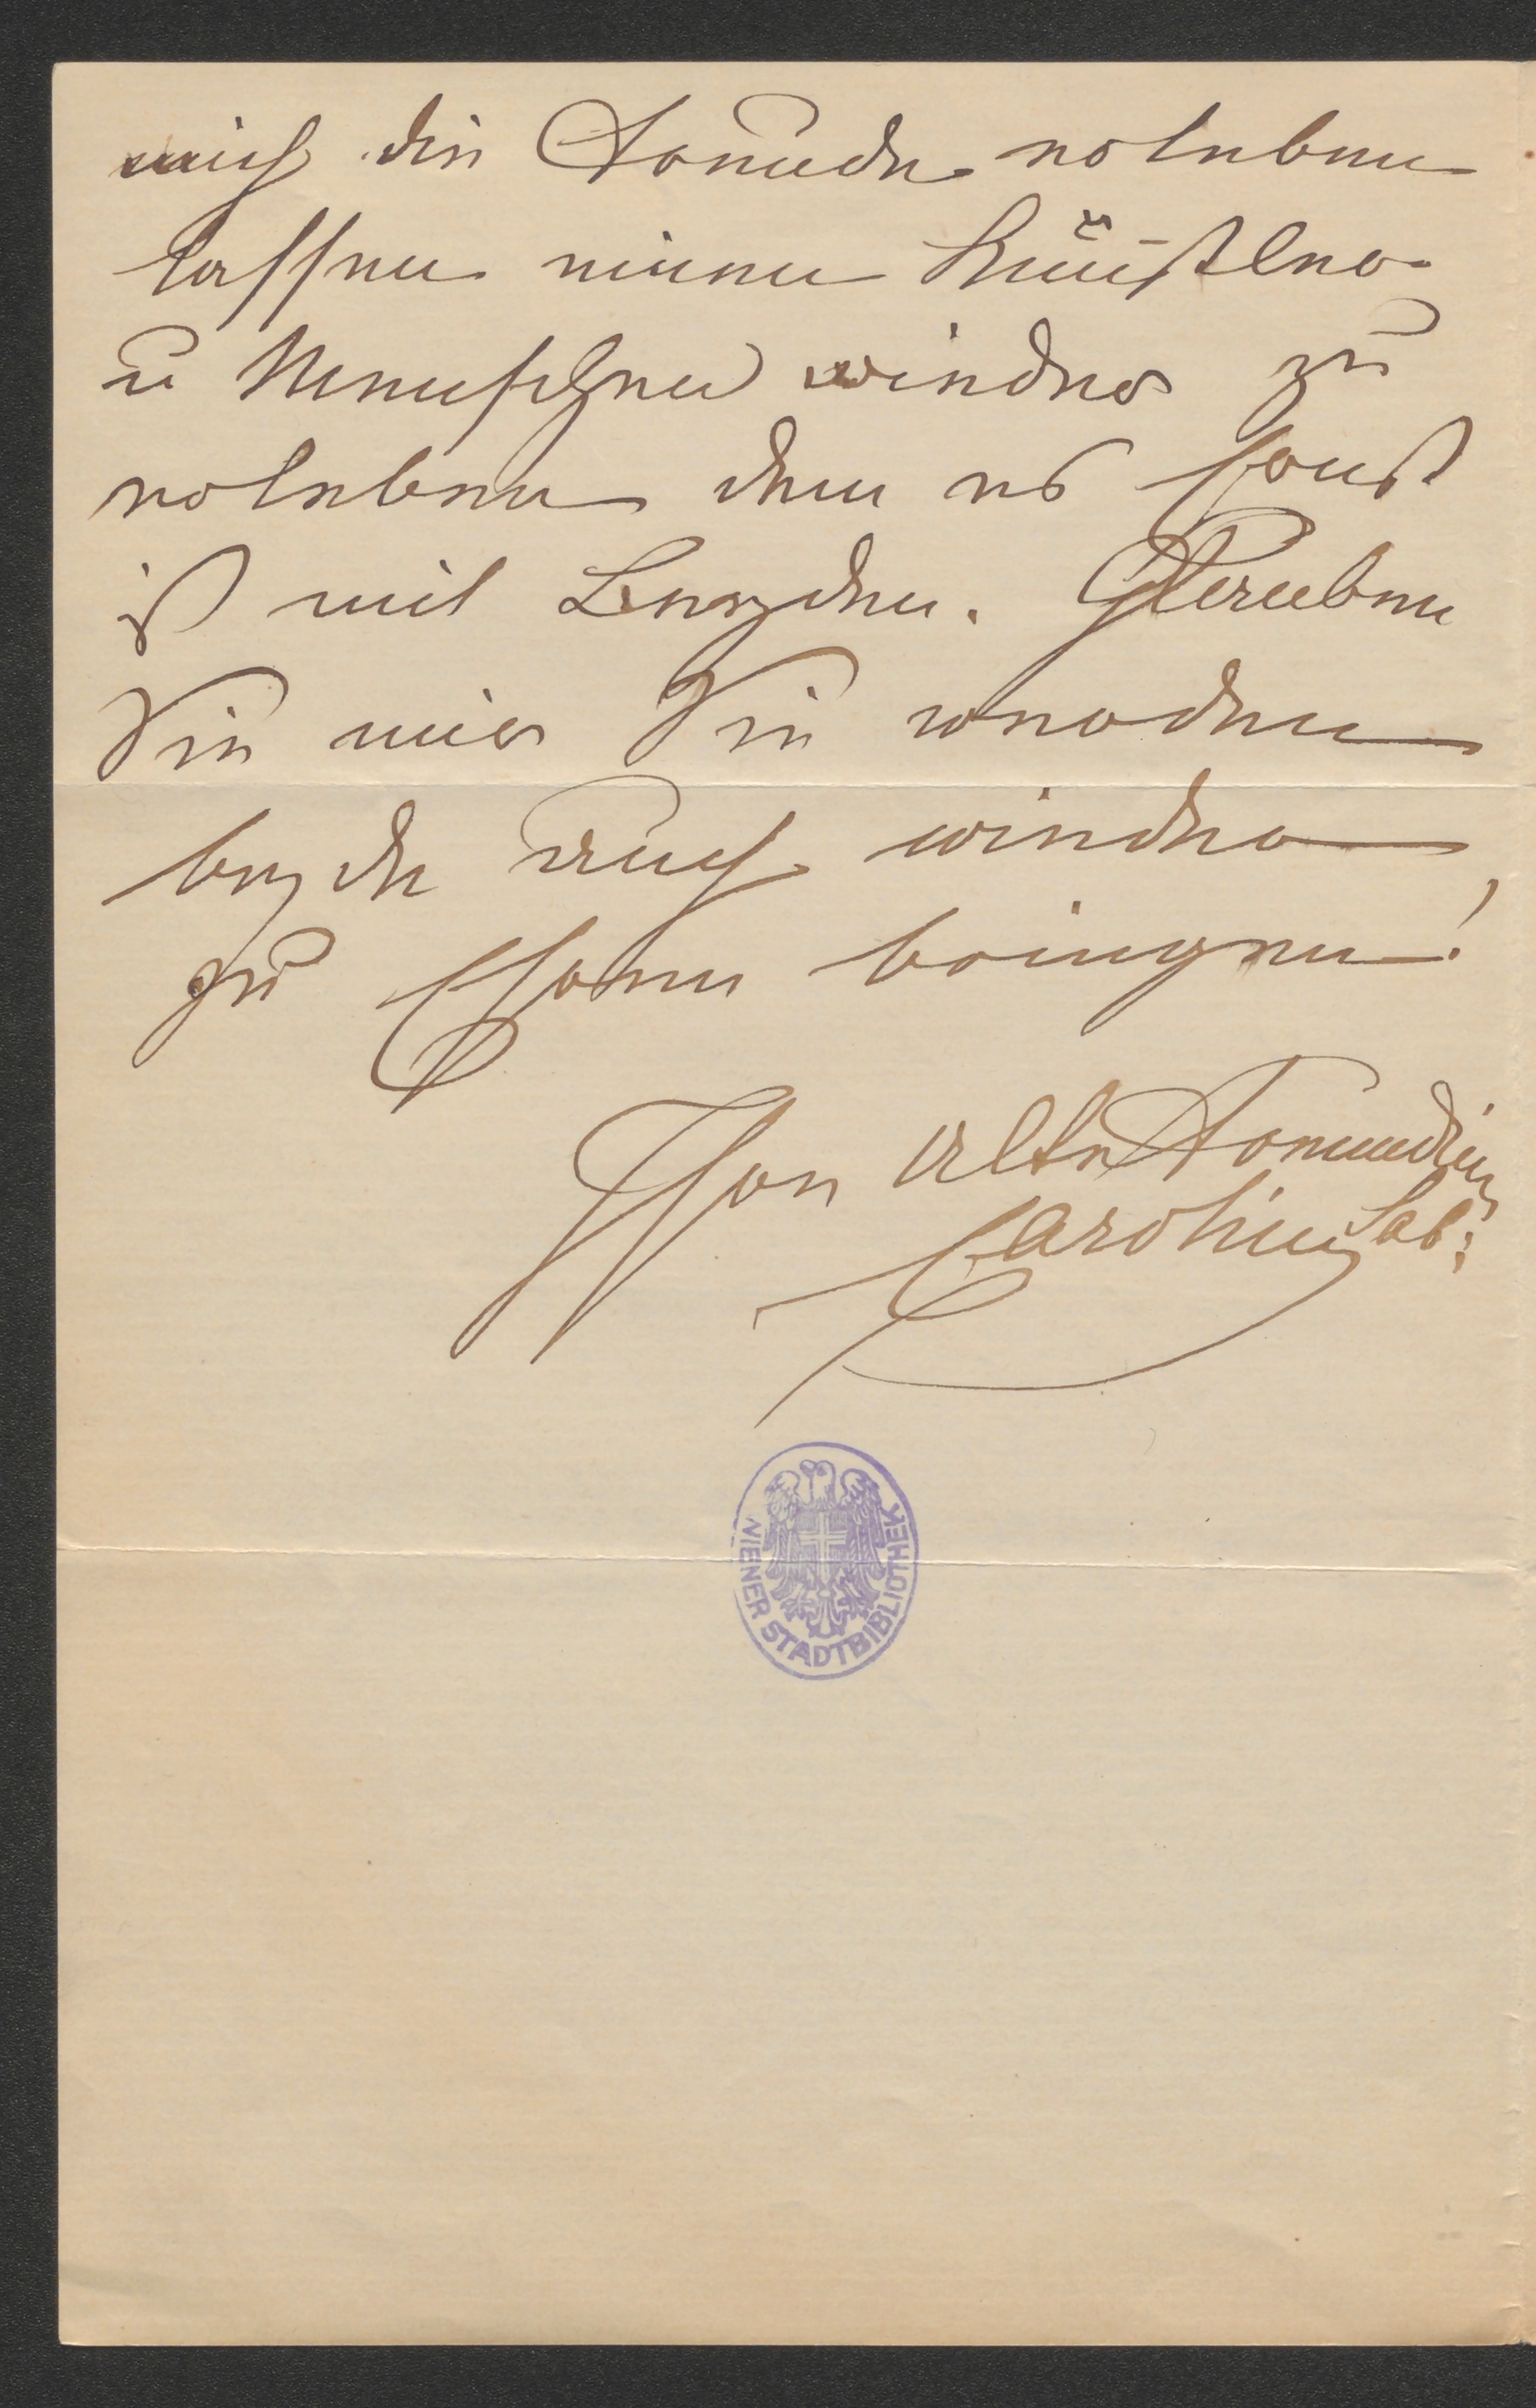 mich die Freude erleben
lassen einen Künstler
u Menschen wieder zu
erleben dem es Ernst
ist mit Beyden. Glauben
Sie mir Sie werden
beyde auch wieder
zu Ehren bringen!
Ihre alte Freundin
Caroline
WIENER STADTBIBLIOTHEK